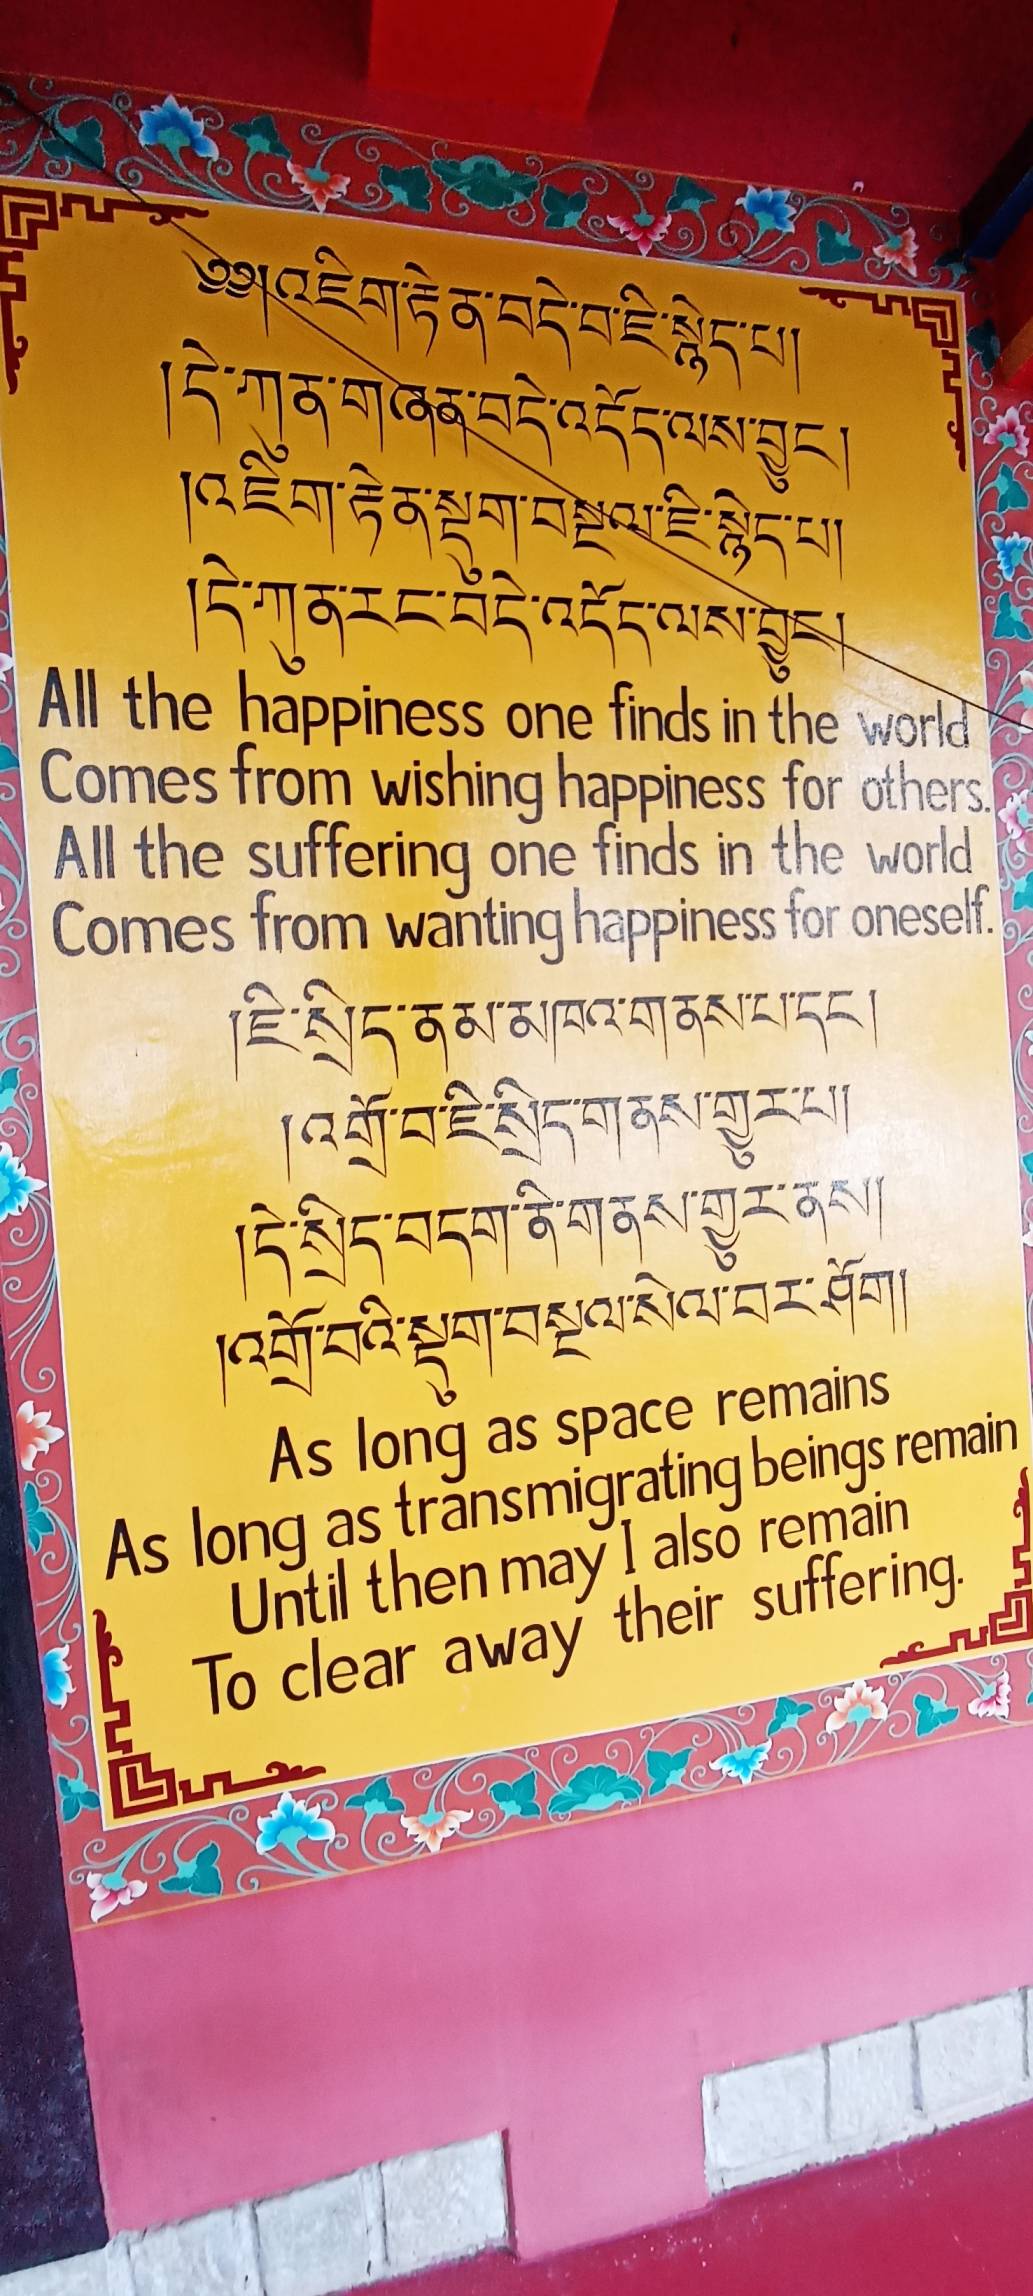 ༄༅།འཇིག་རྟེན་བདེ་བ་ཇི་སྙེད་པ།
།དེ་ཀུན་གཞན་བདེ་འདོད་ལས་བྱུང་།
།འཇིག་རྟེན་སྡུག་བསྔལ་ཇི་སྙེད་པ།
།དེ་ཀུན་རང་བདེ་འདོད་ལས་བྱུང་།
All the happiness one finds in the world
Comes from wishing happiness for others.
All the suffering one finds in the world
Comes from wanting happiness for oneself.
།ཇི་སྲིད་ནམ་མཁའ་གནས་པ་དང་།
།འགྲོ་བ་ཇི་སྲིད་གནས་གྱུར་པ།
།དེ་སྲིད་བདག་ནི་གནས་གྱུར་ནས།
།འགྲོ་བའི་སྡུག་བསྔལ་སེལ་བར་ཤོག།
As long as space remains
As long as transmigrating beings remain
Until then may I also remain
To clear away their suffering.